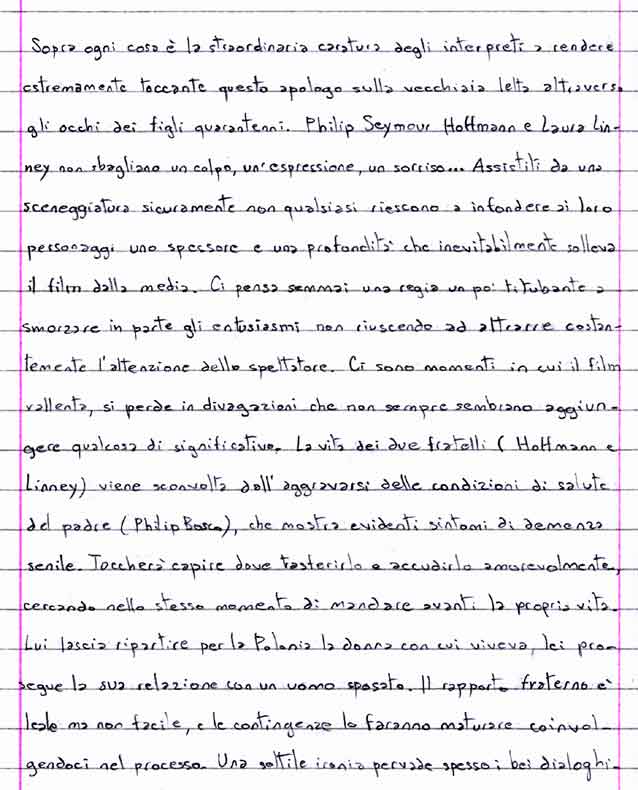 Sopra ogni cosa è la straordinaria caratura degli interpreti a rendere
estremamente toccante questo apologo sulla vecchiaia letta attraverso
gli occhi dei figli quarantenni. Philip Seymour Hoffmann e Laura Lin-
ney non sbagliano un colpo, un'espressione, un sorriso... Assistiti da una
sceneggiatura sicuramente non qualsiasi riescono a infondere ai loro
personaggi uno spessore e una profondità che inevitabilmente solleva
il film dalla media. Ci pensa semmai una regia un po' titubante a
smorzare in parte gli entusiasmi non riuscendo ad attrarre costan-
temente l'attenzione dello spettatore. Ci sono momenti in cui il film
rallenta, si perde in divagazioni che non sempre sembrano aggiun-
gere qualcosa di significativo. La vita dei due fratelli (Hoffmann e
Linney) viene sconvolta dall'aggravarsi delle condizioni di salute
del padre (Philip Bosco), che mostra evidenti sintomi di demenza
senile. Toccherà capire dove trasferirlo e accudirlo amorevolmente,
cercando nello stesso momento di mandare avanti la propria vita.
Lui lascia ripartire per la Polonia la donna con cui viveva, lei pro-
segue la sua relazione con un uomo sposato. Il rapporto fraterno è
leale ma non facile, e le contingenze lo faranno maturare coinvol-
gendoci nel processo. Una sottile ironia pervade spesso i bei dialoghi.